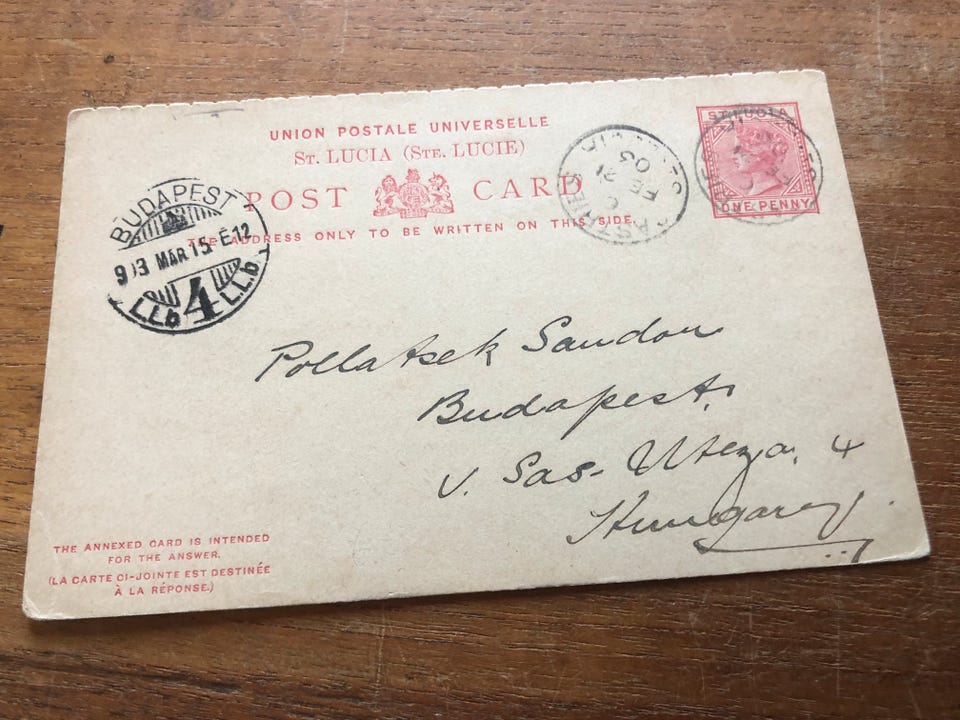 UNION POSTALE UNIVERSELLE
ST. LUCIA (STE. LUCIE)
POST CARD
THE ADDRESS ONLY TO BE WRITTEN ON THIS SIDE.
ST. LUCIA
ONE PENNY
CASTRIES ST LUCIA
FE
03
BUDAPEST
903 MAR 15 E12
LLb 4 L.L.b
Pollatsek Sandor
Budapest.
V. Sas- Utcza. 4
Hungary.
THE ANNEXED CARD IS INTENDED
FOR THE ANSWER.
(LA CARTE CI-JOINTE EST DESTINÉE
À LA RÉPONSE.)